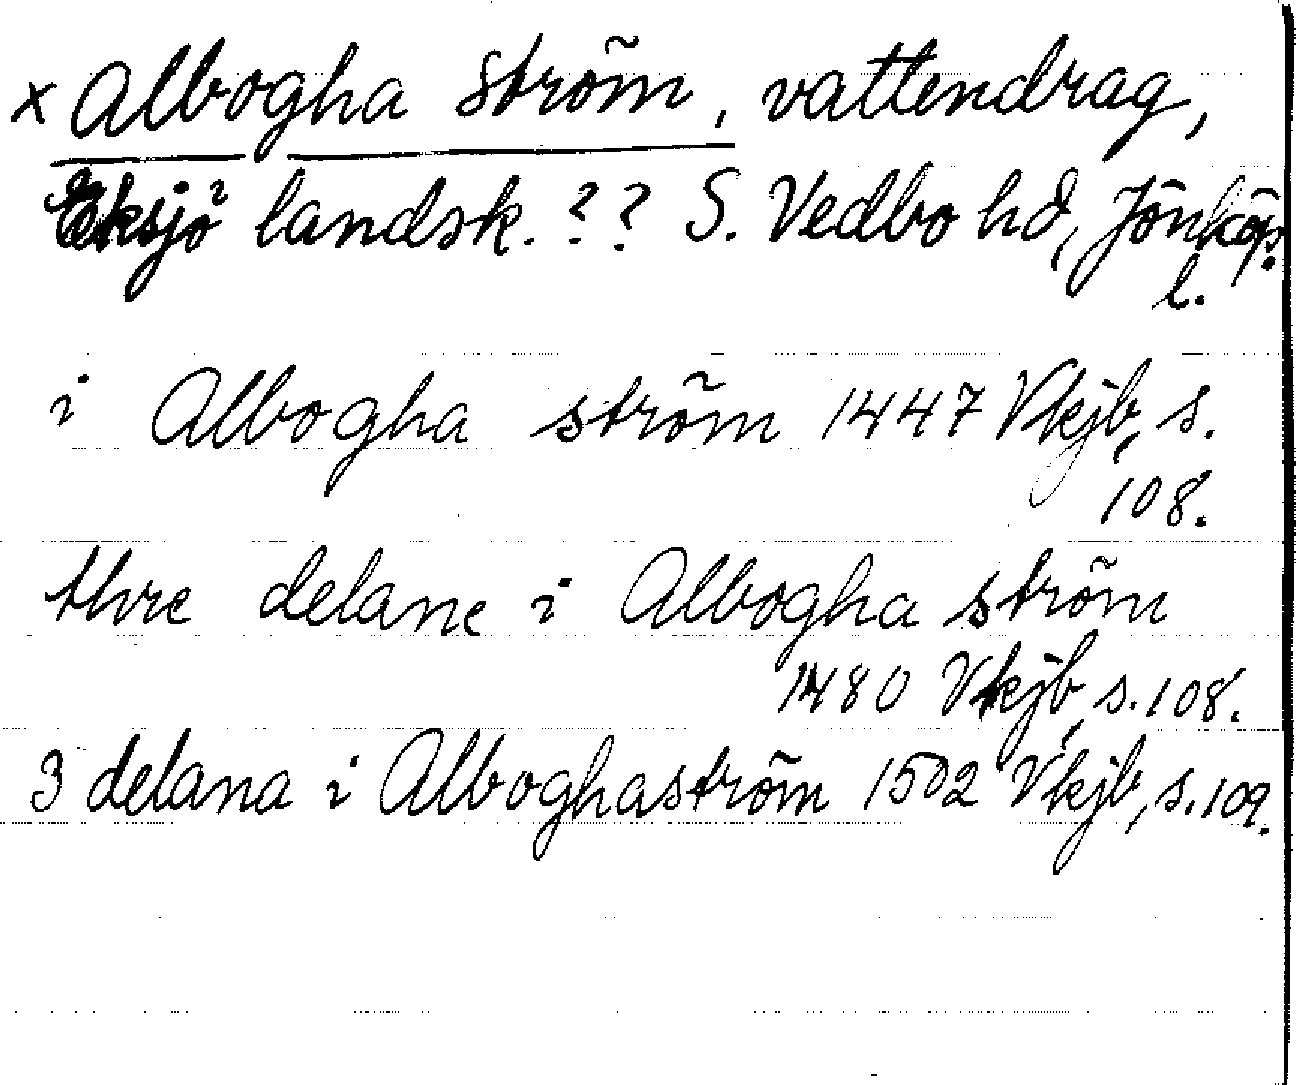 x Albogha ström, vattendrag,
Eksjö landsk. ?? S. Vedbo hd, Jönköp.
l.
i Albogha ström 1447 Vkjb, s.
108.
thre delane i Albogha ström
1480 Vkjb, s. 108.
3 delana i Alboghaström 1502 Vkjb, s. 109.